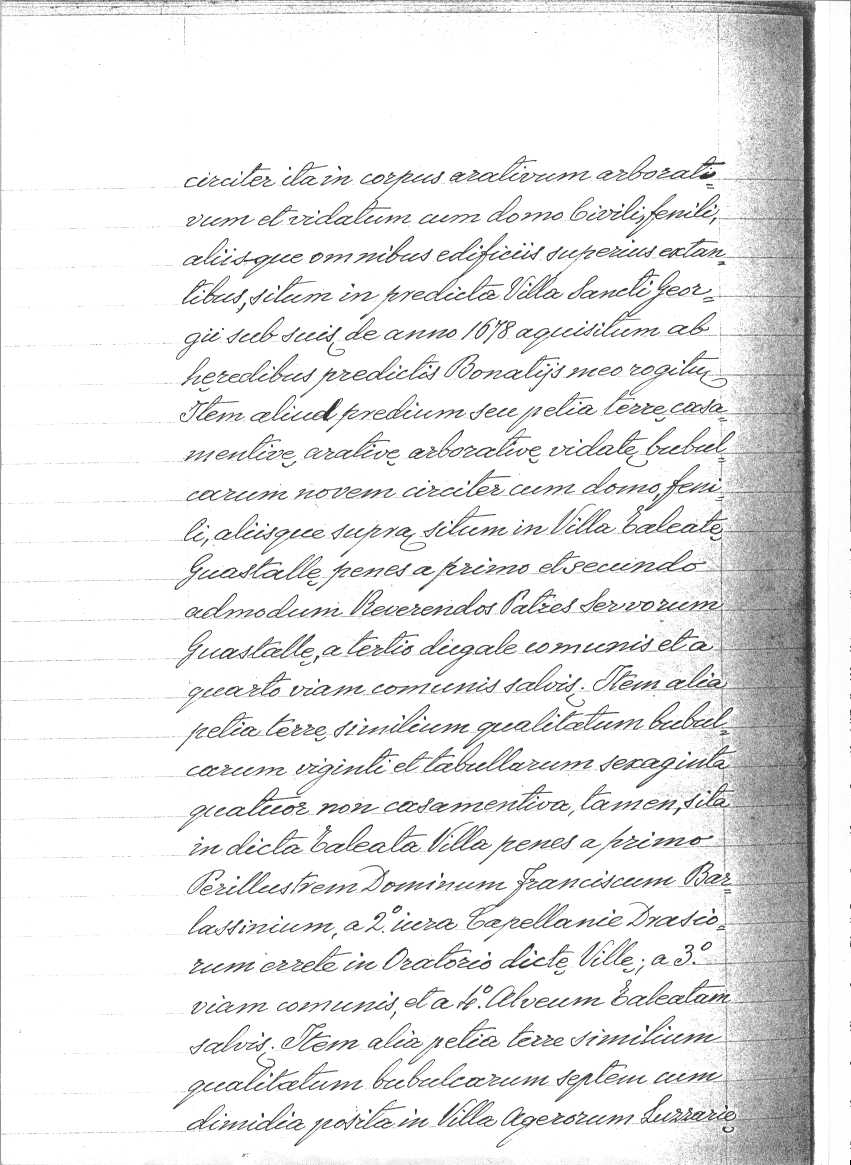 circiter ita in corpus arativum arborati=
vum et vidatum cum domo Civili, fenili,
aliisque omnibus edificiis superius extan=
tibus, situm in predicta Villa Sancti Geor=
gii sub suis de anno 1678 aquisitum ab
hęredibus predictis Bonatijs meo rogitu
Item aliud predium seu petia terrę casa=
mentivę arativę arborativę vidatę bubul=
carum novem circiter cum domo, feni=
li, aliisque supra, situm in Villa Taleatę
Guastallę, penes a primo et secundo
admodum Reverendos Patres Servorum
Guastallę, a tertio dugale comunis et a
quarto viam comunis salvis. Item alia
petia terrę, similium qualitatum bubul=
carum viginti et tabullarum sexaginta
quatuor non casamentiva, tamen, sita
in dicta Taleata Villa penes a primo
Perillustrem Dominum Franciscum Bar=
lassinium, a 2º iura Capellanie Drasio=
rum errete in Oratorio dictę Villę; a 3º
viam comunis, et a 4º. Alveum Taleatam
salvis. Item alia petia terre similium
qualitatum bubulcarum septem cum
dimidia posita in Villa Agerorum Luzzarię